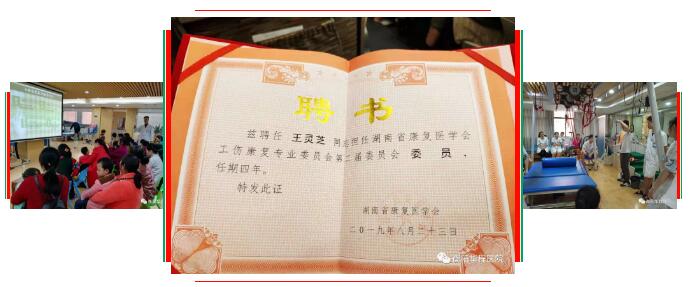 聘书
兹聘任 王灵芝 同志担任湖南省康复医学会
工伤康复专业委员会第二届委员会 委员，
任期四年。
特发此证
湖南省康复医学会
二〇一九年八月二十三日